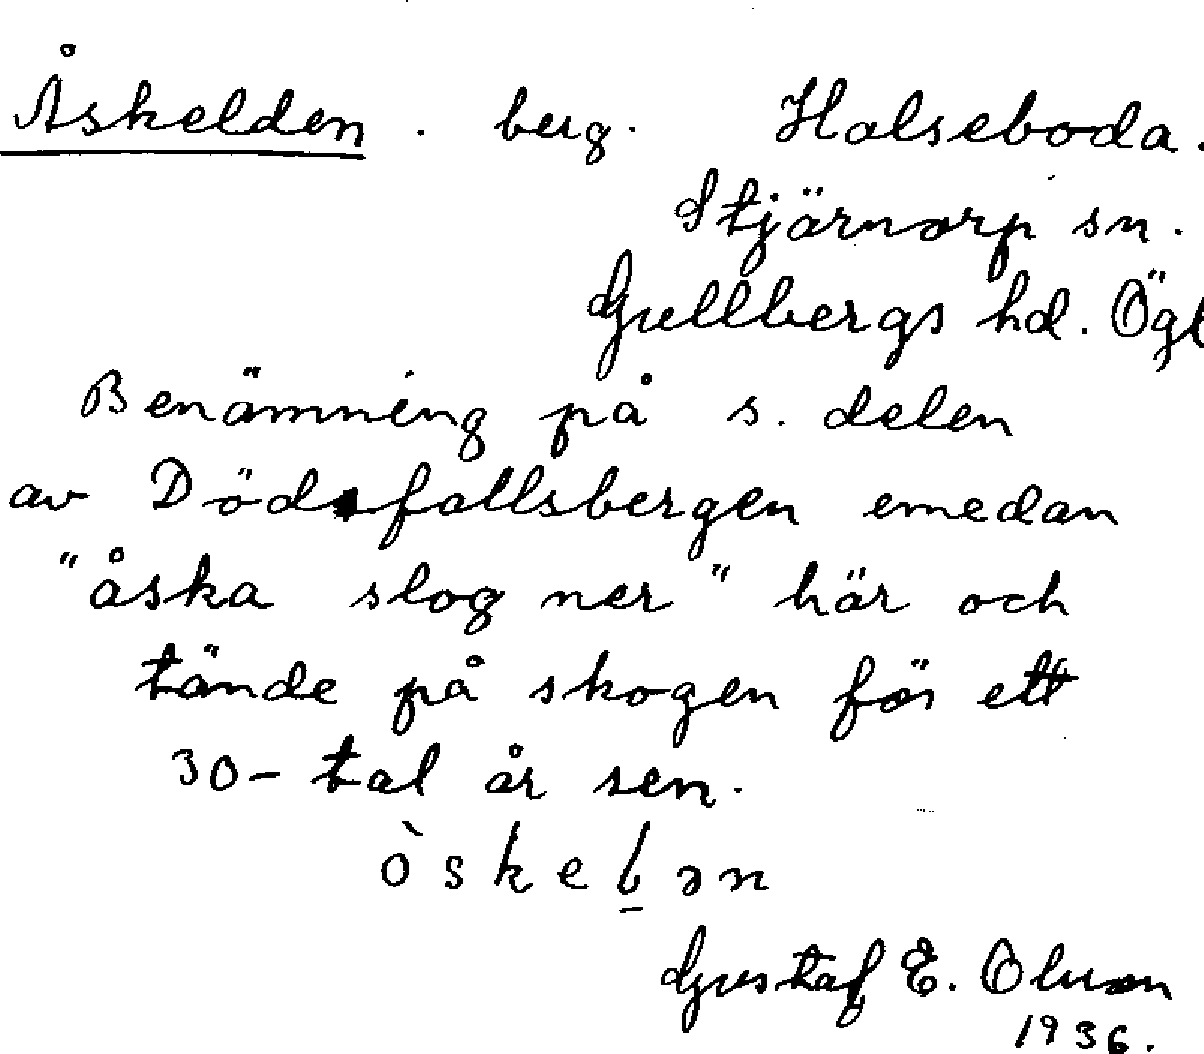 Åskelden. berg. Halseboda.
Stjärnorp sn.
Gullbergs hd. Ögl
Benämning på s. delen
av Dödsfallsbergen emedan
"åska slog ner" här och
tände på skogen för ett
30-tal år sen.
òskeḻən
Gustaf E. Olsson
1936.